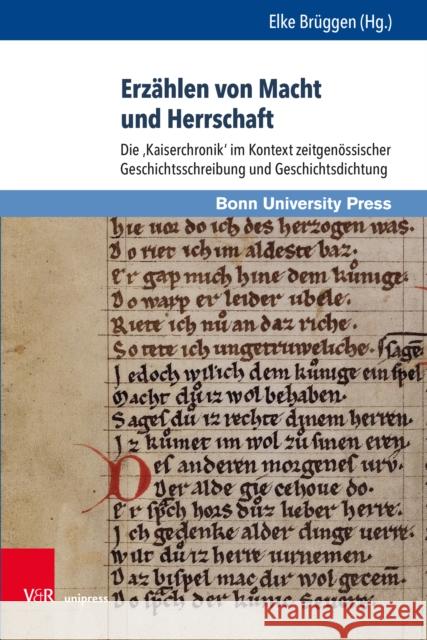 Elke Brüggen (Hg.)
Erzählen von Macht
und Herrschaft
Die ‚Kaiserchronik‘ im Kontext zeitgenössischer
Geschichtsschreibung und Geschichtsdichtung
Bonn University Press
hie vor do ich des herzogen was.
Do riet ich im aldeste baz.
Er gap mich hine dem kůnige.
Do warp er leider ubele.
Riete ich nů an daz riche.
So tete ich ungetruweliche.
sage
Jedoch wil ich dem kůnige ein spel
Macht dů iz wol behaben.
Sages dů iz rechte dinem herren.
Iz kůmet im wol zu sinen eren.
Des anderen morgenes
Der alde gie cehove do.
Er sp̄ch hors důz lieber herre.
Ich gedenke alder dinge verre.
wilt du iz herre vurnemen.
Daz bispel mac dir wol
Do sp̄ch der kůne
V&R unipress